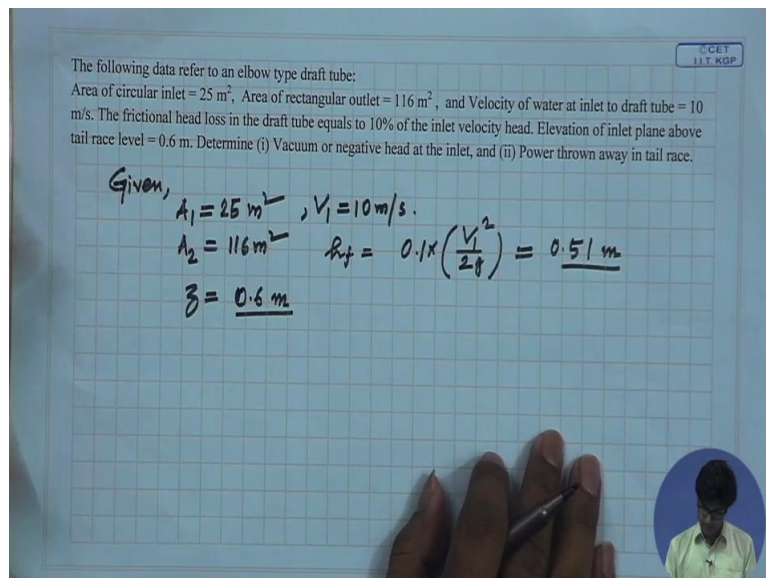 ©CET
I.I.T. KGP
The following data refer to an elbow type draft tube:
Area of circular inlet = 25 m², Area of rectangular outlet = 116 m² , and Velocity of water at inlet to draft tube = 10
m/s. The frictional head loss in the draft tube equals to 10% of the inlet velocity head. Elevation of inlet plane above
tail race level = 0.6 m. Determine (i) Vacuum or negative head at the inlet, and (ii) Power thrown away in tail race.
Given,
A₁ = 25 m² , V₁ = 10 m/s.
A₂ = 116 m² h_f = 0.1 × (V₁²/2g) = 0.51 m
z = 0.6 m